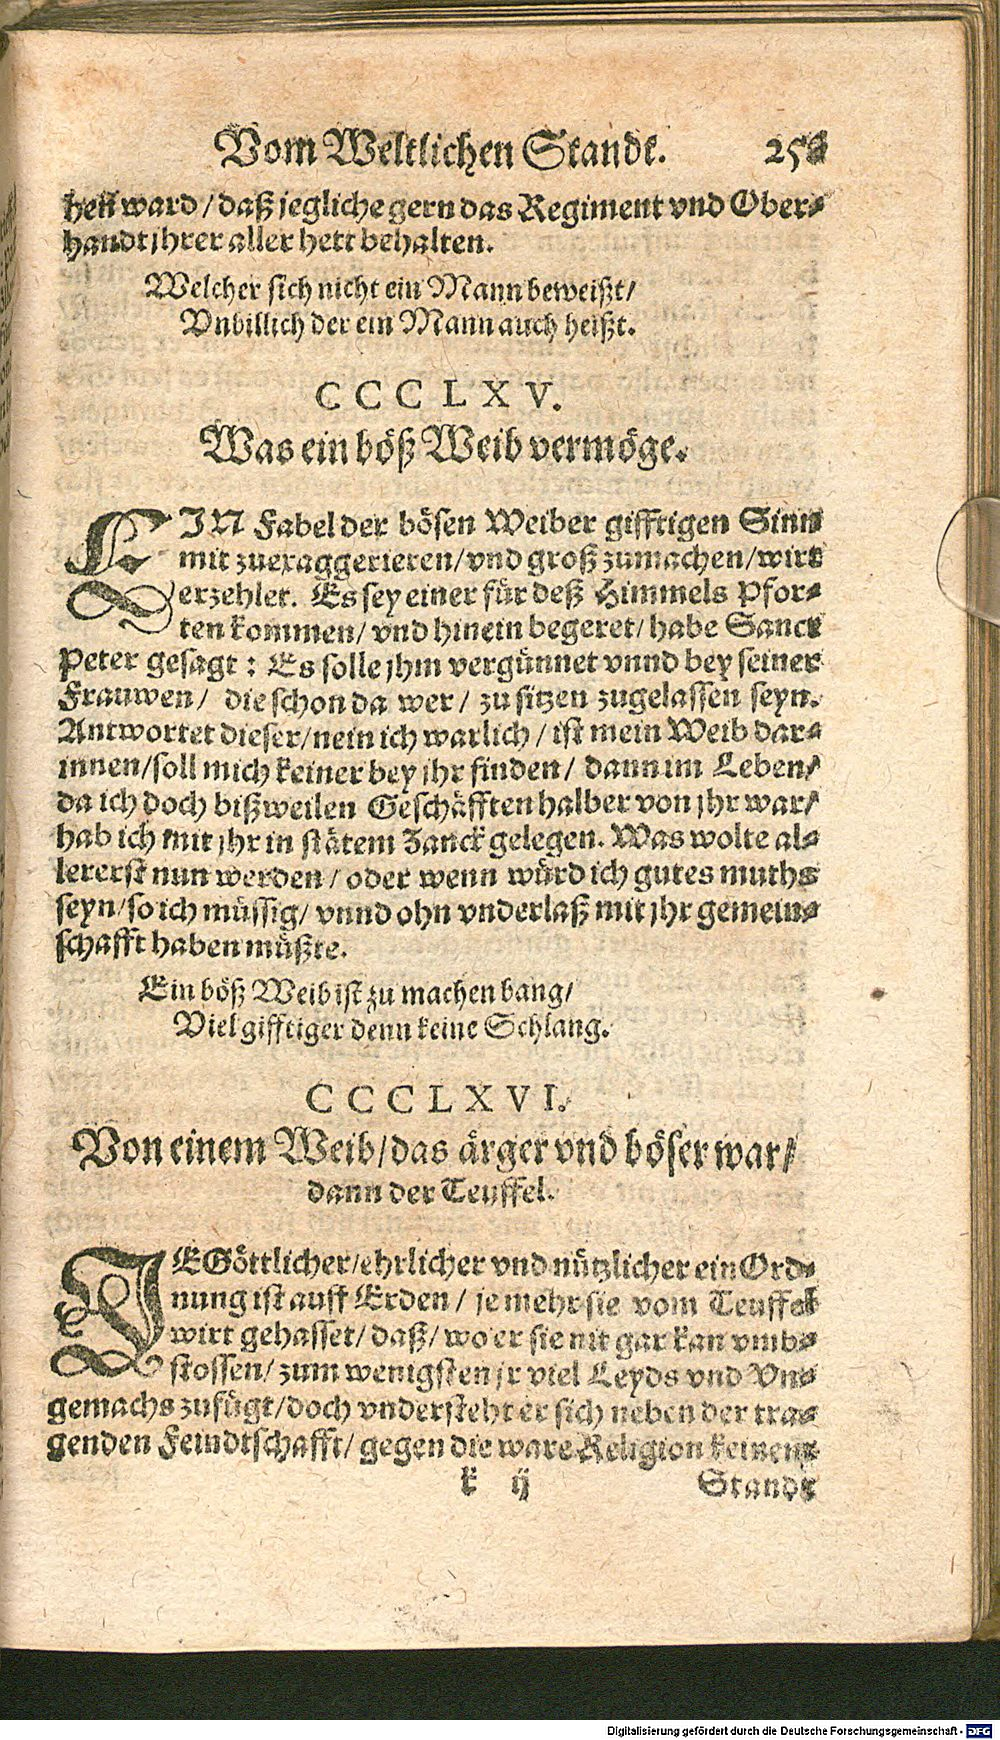 Vom Weltlichen Standt.
hen ward / daß jegliche gern das Regiment vnd Ober-
handt jhrer aller hett behalten.
Welcher sich nicht ein Mann beweißt/
Vnbillich der ein Mann auch heißt.
CCCLXV.
Was ein böß Weib vermöge.
EIN Fabel der bösen Weiber gifftigen Sinn
mit zuexaggerieren/vnd groß zumachen/wirt
erzehlet. Es sey einer für deß Himmels Pfor-
ten kommen/ vnd hinein begeret/ habe Sanct
Peter gesagt : Es solle jhm vergünnet vnnd bey seiner
Frauwen / die schon da wer / zu sitzen zugelassen seyn.
Antwortet dieser/nein ich warlich / ist mein Weib dar-
innen/soll mich keiner bey jhr finden/ dann im Leben/
da ich doch bißweilen Geschäfften halber von jhr war/
hab ich mit jhr in stätem Zanck gelegen. Was wolte al-
lererst nun werden / oder wenn würd ich gutes muths
seyn/so ich müssig/ vnnd ohn vnderlaß mit jhr gemein-
schafft haben müßte.
Ein böß Weib ist zu machen bang/
Viel gifftiger denn keine Schlang.
CCCLXVI.
Von einem Weib/das ärger vnd böser war/
dann der Teuffel.
JE Göttlicher/ehrlicher vnd nützlicher ein Ord-
nung ist auff Erden / je mehr sie vom Teuffel
wirt gehasset/ daß/ wo er sie nit gar kan vmb-
stossen/ zum wenigsten jr viel Leyds vnd Vn-
gemachs zufügt/doch vndersteht er sich neben der tra-
genden Feindtschafft/ gegen die ware Religion keinem
k ij Standt
Digitalisierung gefördert durch die Deutsche Forschungsgemeinschaft - DFG